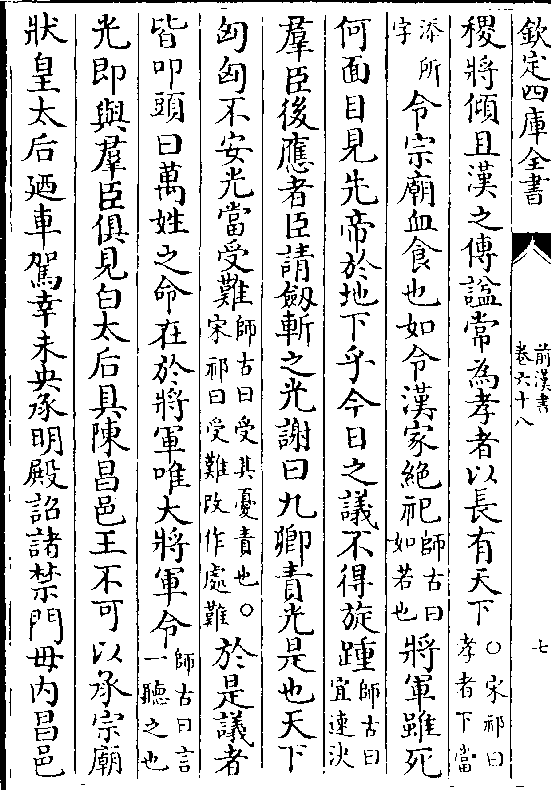 欽定四庫全書
前漢書
卷六十八
七
稷將傾且漢之傳諡常為孝者以長有天下○宋祁曰孝者下當
添所字令宗廟血食也如令漢家絕祀師古曰如若也將軍雖死
何面目見先帝於地下乎今日之議不得旋踵師古曰宜速決
羣臣後應者臣請劔斬之光謝曰九卿責光是也天下
匈匈不安光當受難師古曰受其憂責也○宋祁曰受難改作處難於是議者
皆叩頭曰萬姓之命在於將軍唯大將軍令師古曰言一聽之也
光即與羣臣俱見白太后具陳昌邑王不可以承宗廟
狀皇太后廼車駕幸未央承明殿詔諸禁門毋內昌邑